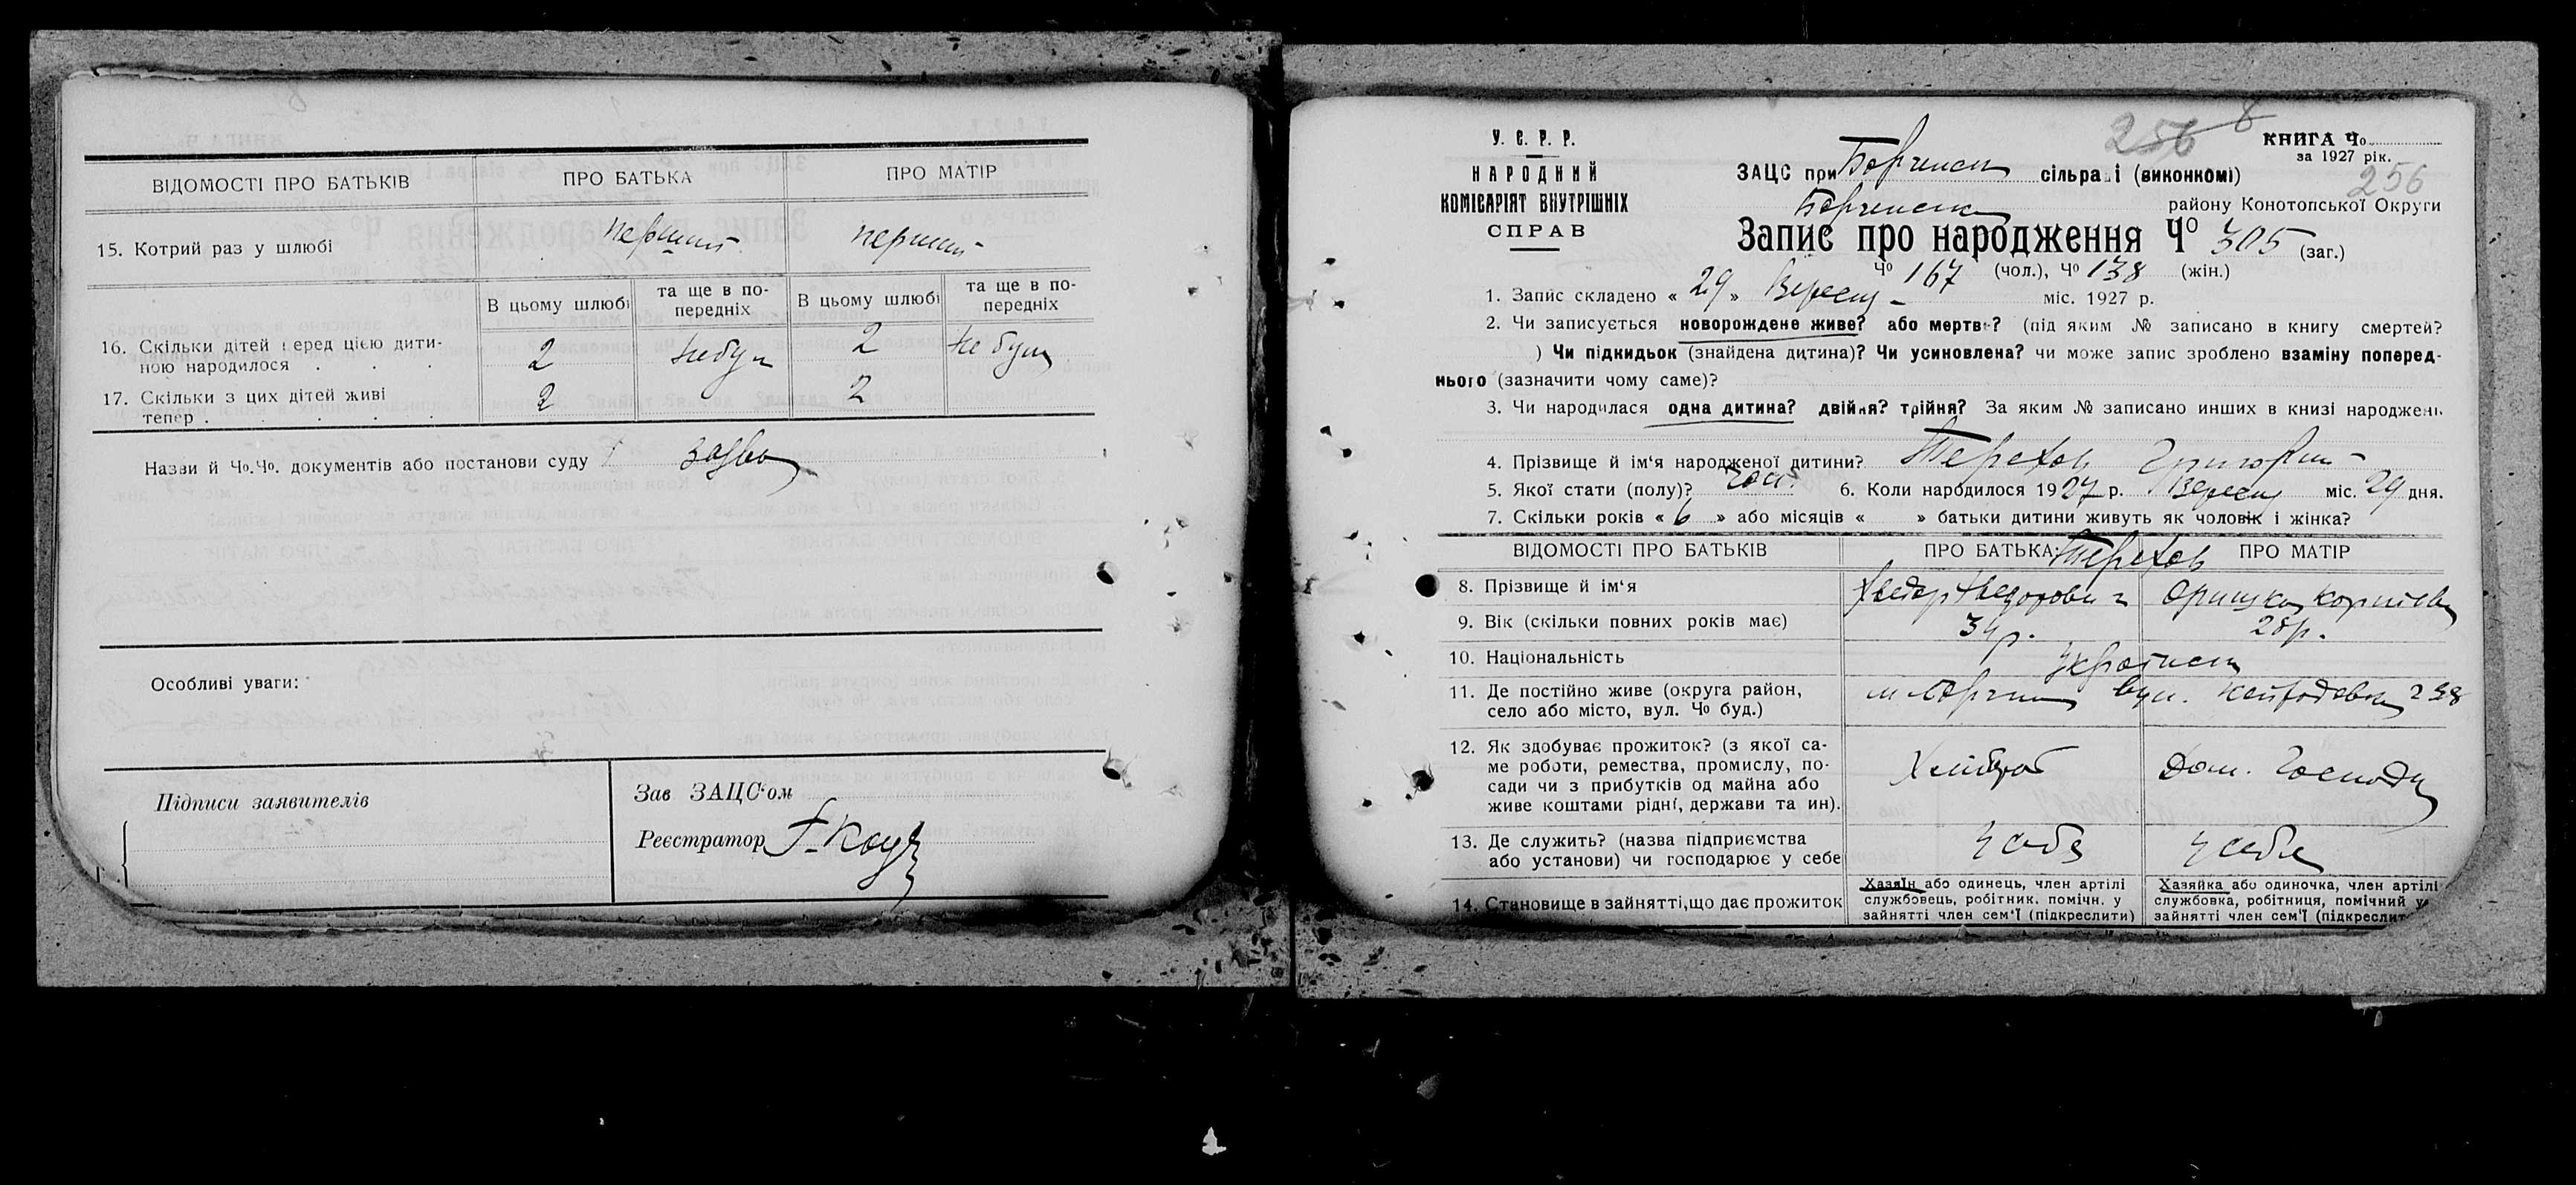 ВІДОМОСТІ ПРО БАТЬКІВ ПРО БАТЬКА ПРО МАТІР
15. Котрий раз у шлюбі перший перший
В цьому шлюбі та ще в по-передніх В цьому шлюбі та ще в по-передніх
16. Скільки дітей перед цією дити-
ною народилося . . . 2 не було 2 не було
17. Скільки з цих дітей живі
тепер . . . . 2 2
Назви й Чо.Чо. документів або постанови суду заява
Особливі уваги:
Підписи заявителів
Зав ЗАЦС'ом
Реєстратор
У. С. Р. Р.
НАРОДНИЙ
КОМІСАРІЯТ ВНУТРІШНІХ
СПРАВ
256 8
КНИГА Чо
за 1927 рік.
256
ЗАЦС при Борзенськ сільраді (виконкомі)
Борзенськ району Конотопської Округи
Запис про народження Чо 305 (заг.)
Чо 167 (чол.), Чо 138 (жін.)
1. Запис складено « 29 » Вересня міс. 1927 р.
2. Чи записується новорождене живе? або мертве? (під яким № записано в книгу смертей?
) Чи підкидьок (знайдена дитина)? Чи усиновлена? чи може запис зроблено взаміну поперед-
нього (зазначити чому саме)?
3. Чи народилася одна дитина? двійня? трійня? За яким № записано инших в книзі народжень
4. Прізвище й ім'я народженої дитини? Терехов Григорій
5. Якої стати (полу)? чол. 6. Коли народилося 1927 р. Вересня міс. 29 дня.
7. Скільки років « 6 » або місяців « » батьки дитини живуть як чоловік і жінка?
ВІДОМОСТІ ПРО БАТЬКІВ ПРО БАТЬКА ПРО МАТІР
Терехов
8. Прізвище й ім'я Хведір Хведорович Оришка Корніївна
9. Вік (скільки повних років має) 34 р. 28 р.
10. Національність Українськ
11. Де постійно живе (округа район,
село або місто, вул. Чо буд.) м Борзна вул. 238
12. Як здобуває прожиток? (з якої са-
ме роботи, ремества, промислу, по-
сади чи з прибутків од майна або
живе коштами рідні, держави та ин). Хлібороб Дом. Господ
13. Де служить? (назва підприємства
або установи) чи господарює у себе у себе у себе
14. Становище в зайнятті, що дає прожиток
Хазяїн або одинець, член артілі
службовець, робітник. помічн. у
зайнятті член сем'ї (підкреслити)
Хазяйка або одиночка, член артілі
службовка, робітниця, помічний у
зайнятті член сем'ї (підкреслит